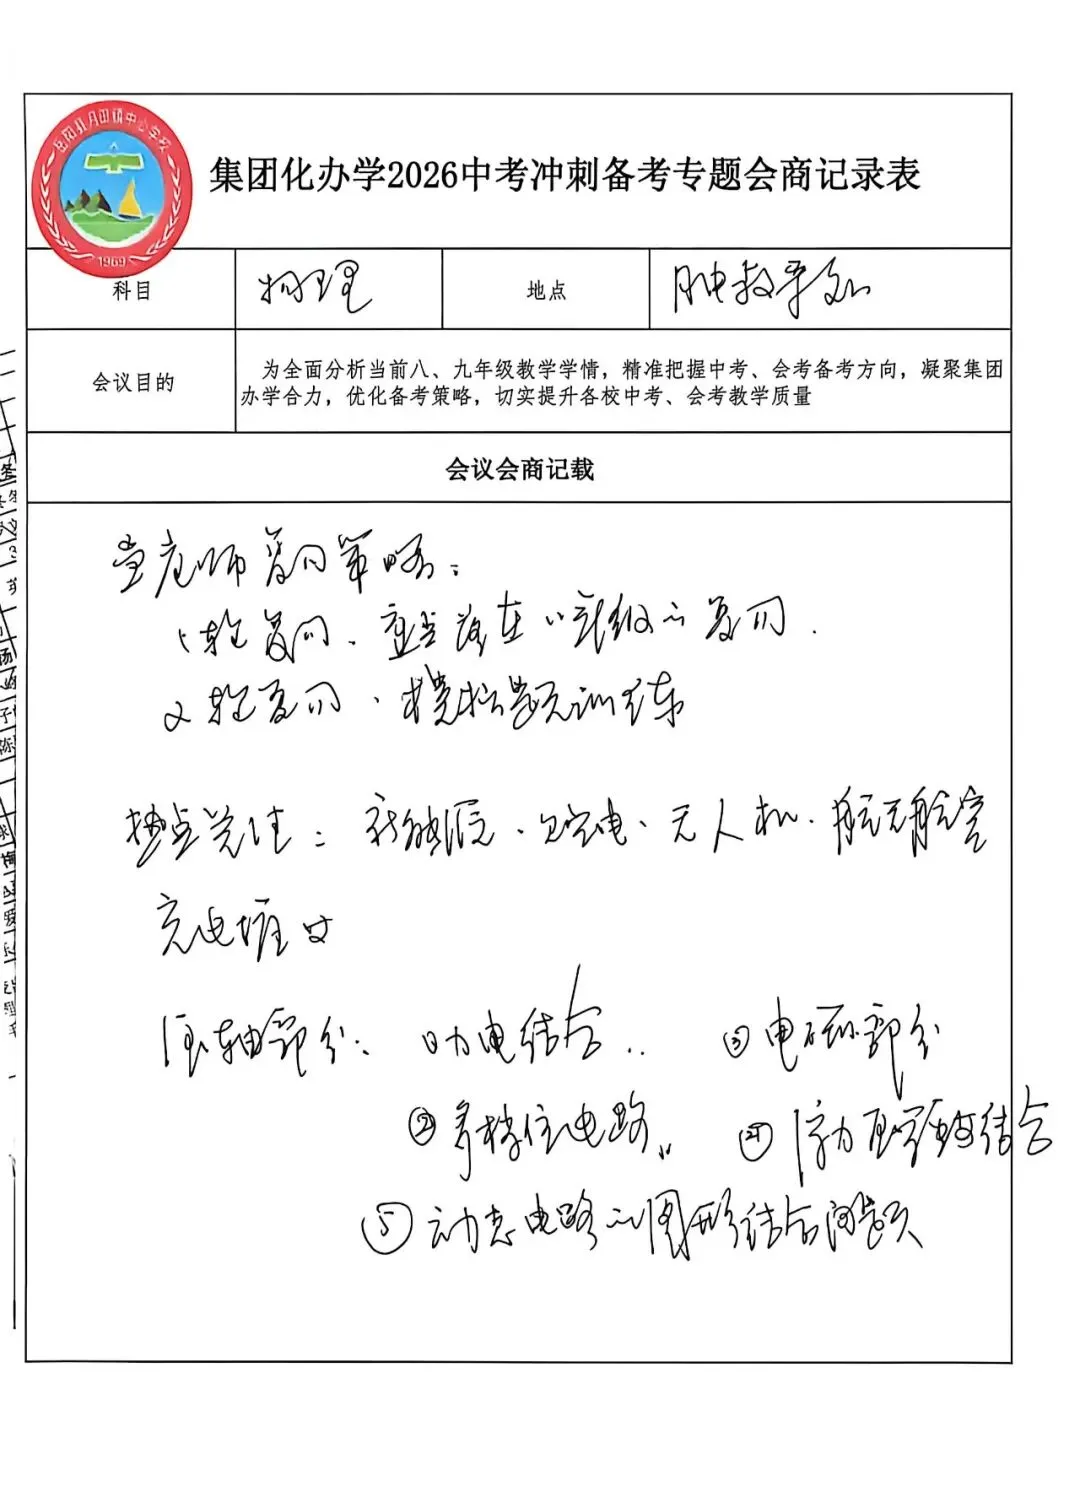 岳阳县月田镇中心学校
1969
集团化办学2026中考冲刺备考专题会商记录表
科目 物理 地点
会议目的 为全面分析当前八、九年级教学学情，精准把握中考、会考备考方向，凝聚集团
办学合力，优化备考策略，切实提升各校中考、会考教学质量
会议会商记载
老师复习策略：
1轮复习、重点落在 复习.
2轮复习、模拟题训练
热点关注：新能源、 电、无人机、航天航空
充电
压轴部分： ①力电结合 ③电磁部分
②多档位电路 ④浮力压强 结合
⑤动态电路 图形结合问题